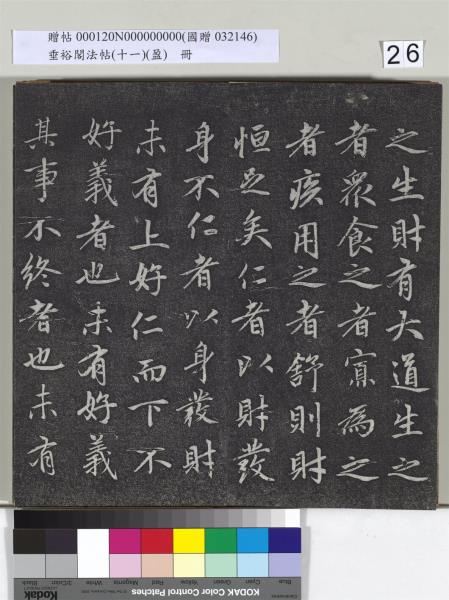 贈帖 000120N000000000(國贈 032146)
垂裕閣法帖(十一)(盈) 冊
26
之生財有大道生之
者眾食之者寡為之
者疾用之者舒則財
恒足矣仁者以財發
身不仁者以身發財
未有上好仁而下不
好義者也未有好義
其事不終者也未有
Blue Cyan Green Yellow Red Magenta White 3/Color Black
Kodak Color Control Patches